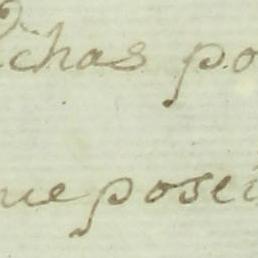 chas po
ue posei